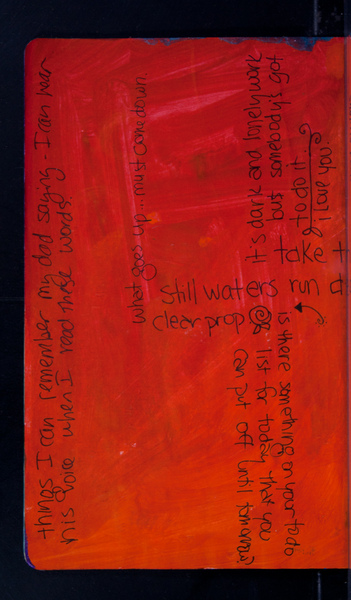 things I can remember my dad saying - I can hear
his voice when I read these words.
what goes up... must come down.
It's dark and lonely work
but somebody's got
to do it.
I love you.
take
still waters run
clear prop
is there something on your to do
list for today that you
can put off until tomorrow?